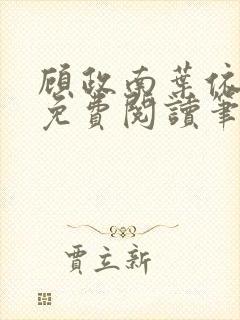 顾政南葉依
免費閱讀筆
賈立新